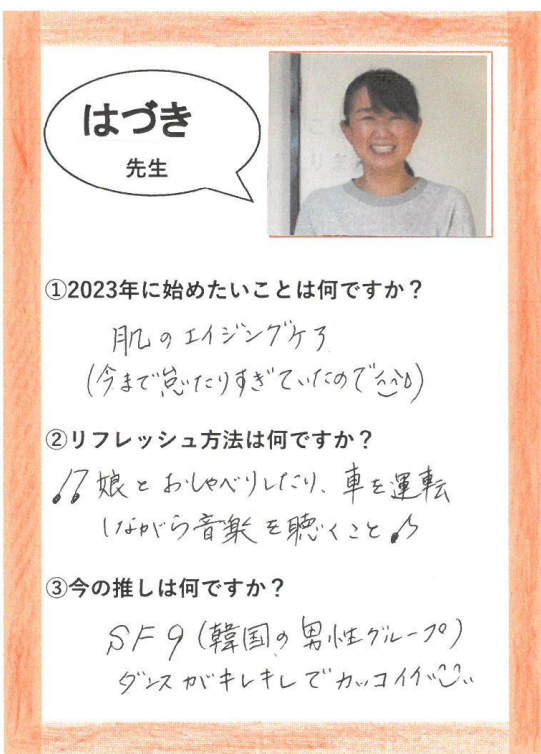 はづき
先生
①2023年に始めたいことは何ですか？
肌のエイジングケア
(今まで怠たりすぎていたので^^;)
②リフレッシュ方法は何ですか？
♫ 娘とおしゃべりしたり、車を運転
しながら音楽を聴くこと♪
③今の推しは何ですか？
SF9 (韓国の男性グループ)
ダンスがキレキレでカッコイイ